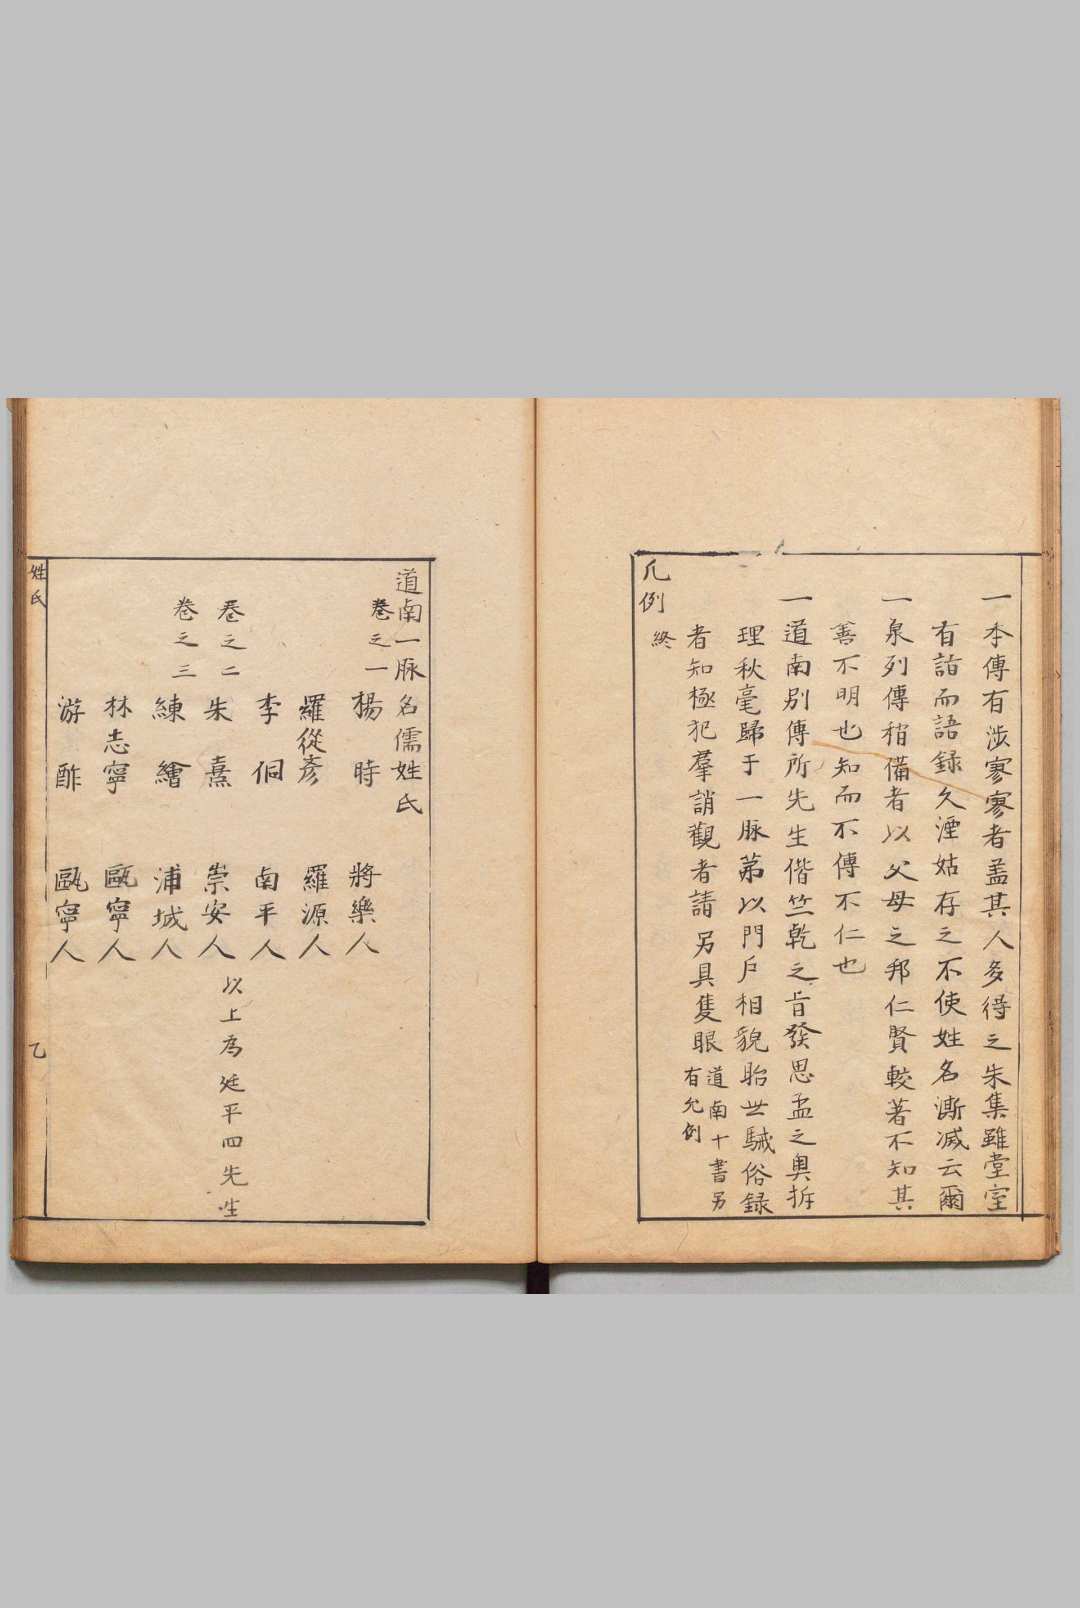 一本傳有涉寥寥者盖其人多得之朱集雖堂室
有詣而語録久湮姑存之不使姓名澌滅云爾
一泉列傳稍備者以父母之邦仁賢較著不知其
善不明也知而不傳不仁也
一道南别傳所先生偕竺乾之旨發思孟之奧拆
理秋毫歸于一脉第以門户相貌貽世駴俗録
者知極犯羣誚觀者請另具隻眼
道南十書另
有凡例
凡例
終
道南一脉名儒姓氏
卷之一
楊時 將樂人
羅從彥 羅源人
李侗 南平人
卷之二
朱熹 崇安人
以上為延平四先生
卷之三
練繪 浦城人
林志寧 甌寧人
游酢 甌寧人
姓氏
乙